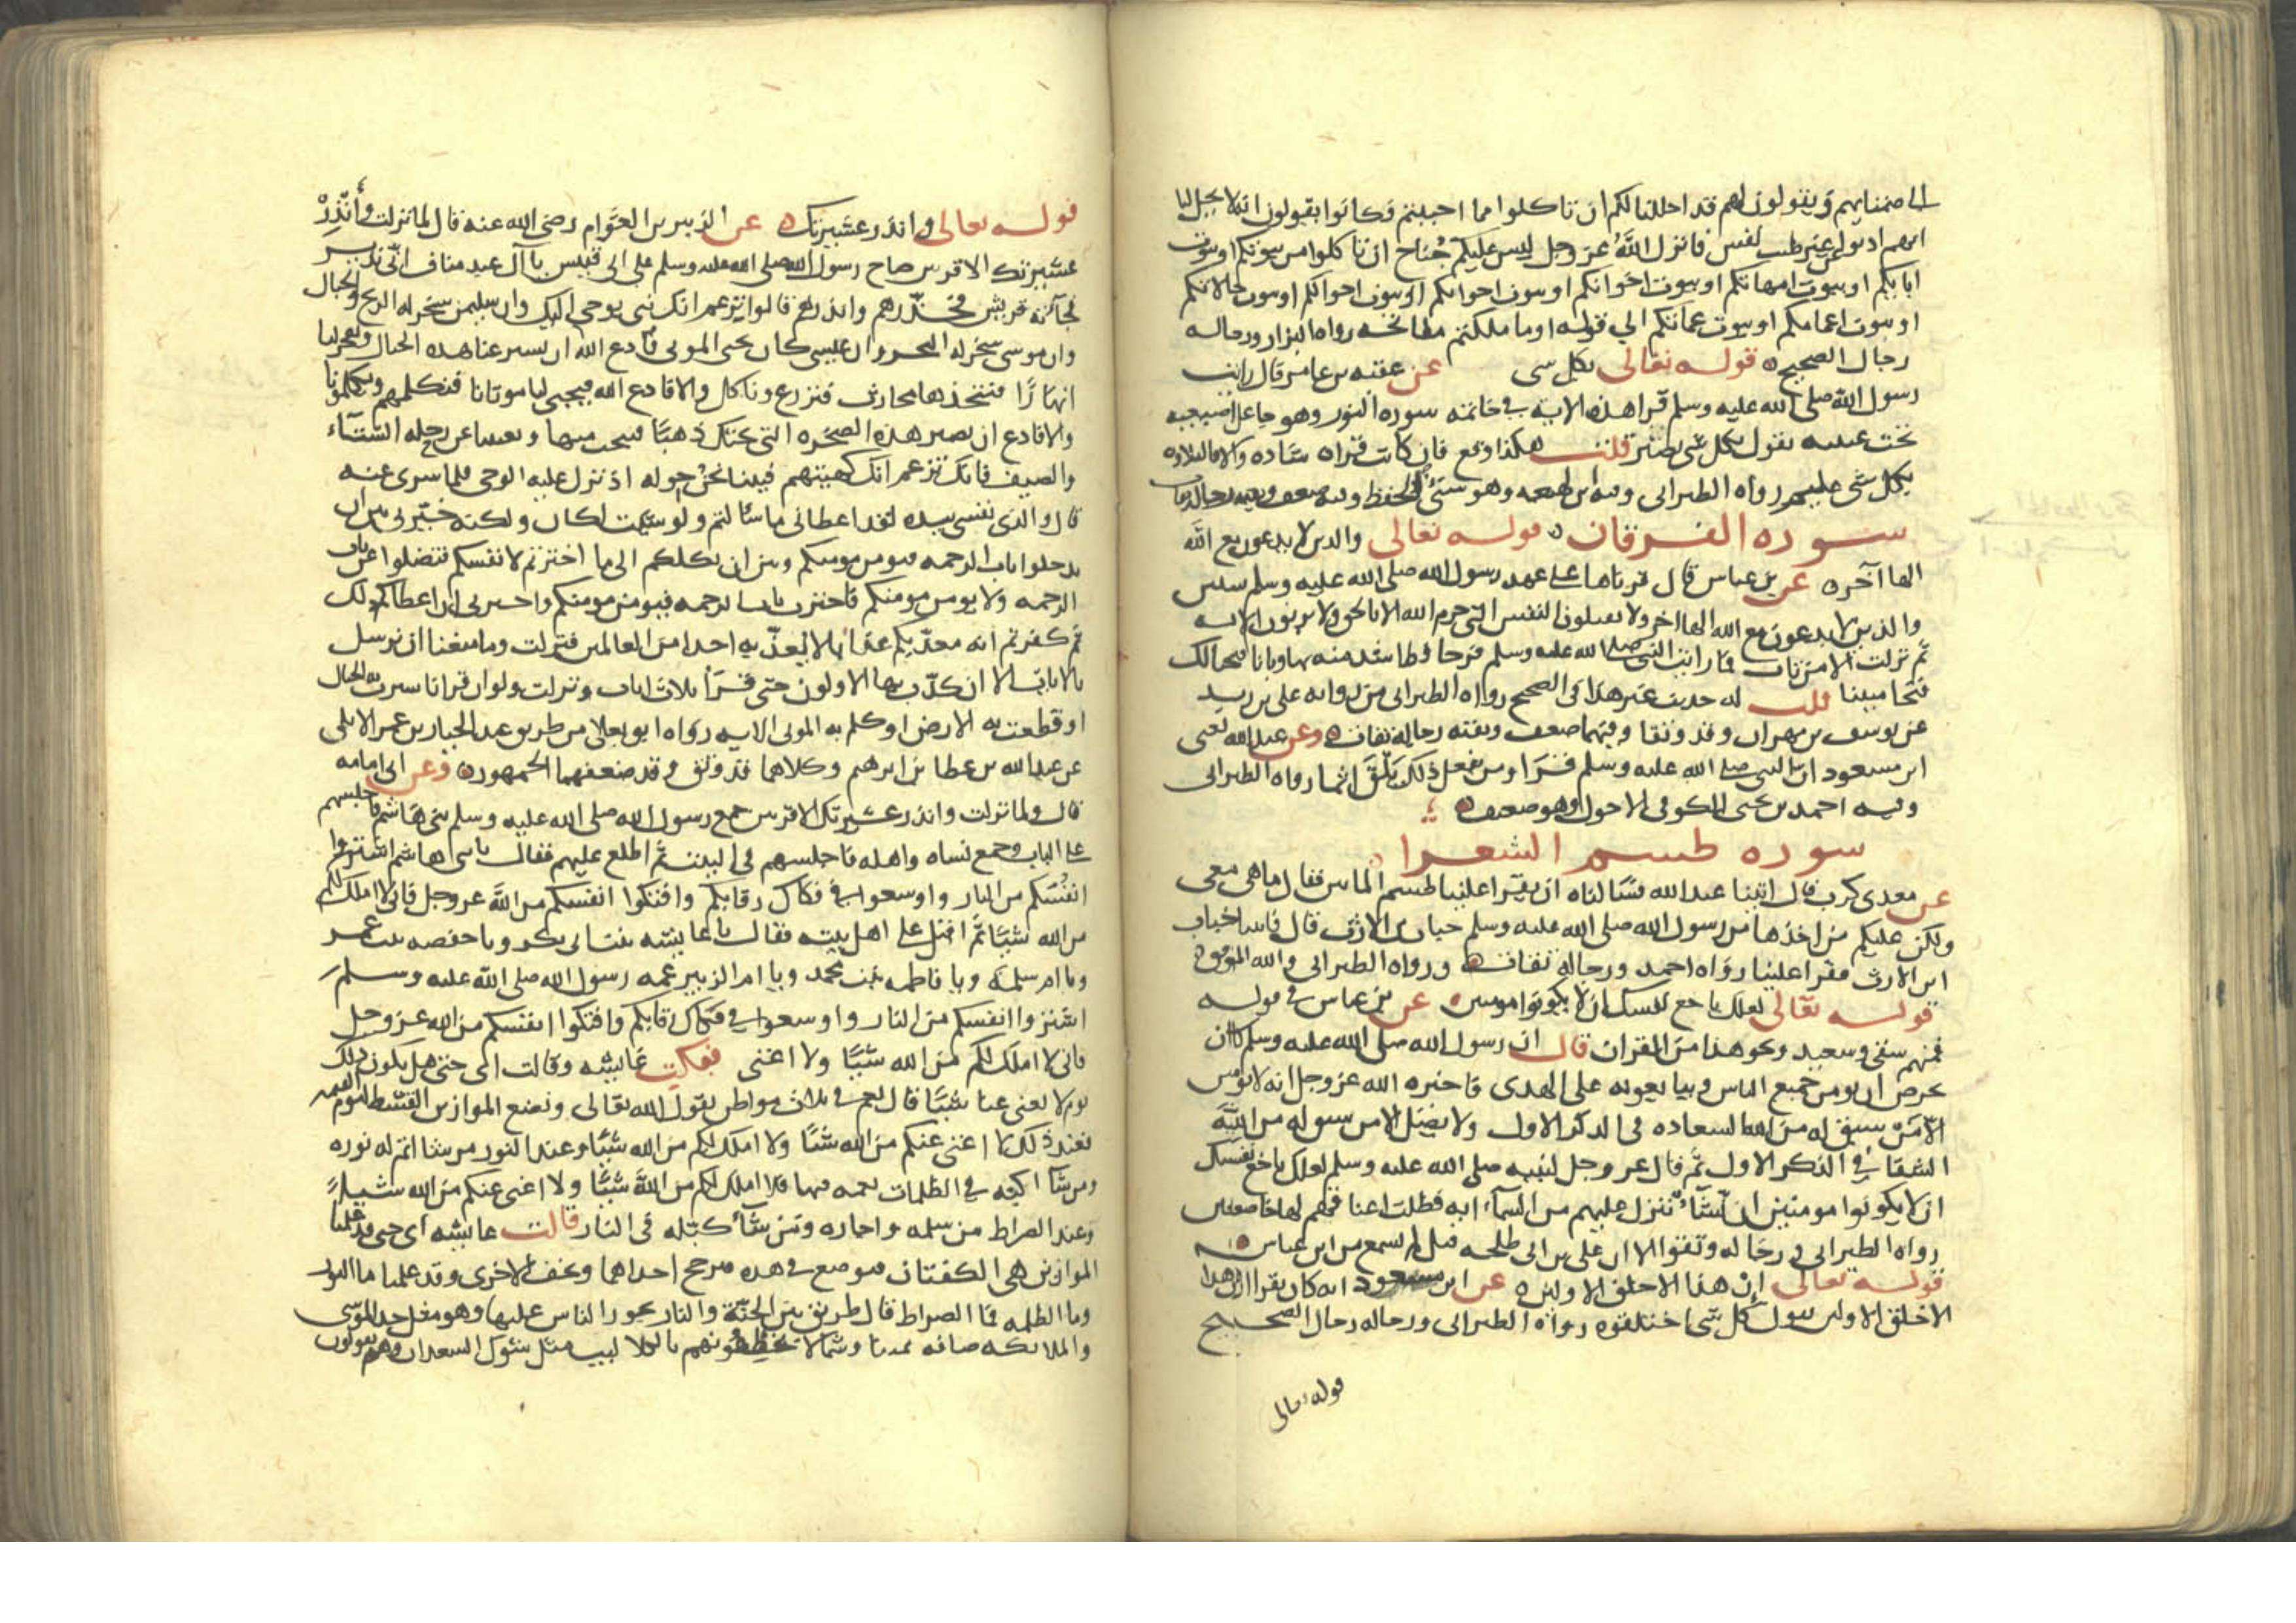 الى ضمنايهم ويقولون لهم قد احللنا لكم ان تاكلوا مما احببتم فكانوا يقولون انه لا يحل لنا
انهم اذنوا عن غير طيب نفس فانزل الله عز وجل ليس عليكم جناح ان تاكلوا من بيوتكم او بيوت
ابايكم او بيوت امهاتكم او بيوت اخوانكم او بيوت اخواتكم او بيوت اخوالكم او بيوت خالاتكم
او بيوت اعمامكم او بيوت عماتكم الي قوله او ما ملكتم مفاتحه رواه البزار ورجاله
رجال الصحيح قوله تعالى بكل شي عن عقبه بن عامر قال رايت
رسول الله صلى الله عليه وسلم قرا هذه الاية في خاتمه سورة النور وهو جاعل اصبعيه
تحت عينيه يقول بكل شي بصير قلت هكذا وقع فان كانت قراه شاده والا فالتلاوه
بكل شي عليم رواه الطبرانى وفيه ابن لهيعه وهو سيئ الحفظ وفيه ضعف وبقيه رجاله ثقات
سوره الفرقان قوله تعالى والذين لا يدعون مع الله
الها آخر عن بن عباس قال قرناها على عهد رسول الله صلى الله عليه وسلم سنين
والذين لا يدعون مع الله الها اخر ولا يقتلون النفس التى حرم الله الا بالحق ولا يزنون الايه
ثم نزلت الا من تاب فما رايت النبى صلى الله عليه وسلم فرحا قط اشد منه بها وبانا فتحنا لك
فتحا مبينا قلت له حديث غير هذا فى الصحيح رواه الطبرانى من روايه على بن زيد
عن يوسف بن مهران وقد وثقا وفيهما ضعف وبقيه رجاله ثقات وعن عبد الله يعنى
ابن مسعود ان النبى صلى الله عليه وسلم قرا ومن يفعل ذلك يلق اثاما رواه الطبرانى
وفيه احمد بن يحيى الكوفى الاحول وهو ضعيف
سوره طسم الشعرا
عن معدى كرب قال اتينا عبد الله فسالناه ان يقرا علينا طسم الماتين فقال ما هى معى
ولكن عليكم من اخذها من رسول الله صلى الله عليه وسلم خباب بن الارت قال فاتينا خباب
ابن الارت فقرا علينا رواه احمد ورجاله ثقات ورواه الطبرانى والله الموفق
قوله تعالى لعلك باخع نفسك ان لا يكونوا مومنين عن بن عباس في قوله
فمنهم شقى وسعيد ونحو هذا من القران قال ان رسول الله صلى الله عليه وسلم كان
يحرص ان يومن جميع الناس ويبايعونه على الهدى فاخبره الله عز وجل انه لا يومن
الا من سبق له من الله السعاده فى الذكر الاول ولا يضل الا من سبق له من الله
الشقا في الذكر الاول ثم قال عز وجل لنبيه صلى الله عليه وسلم لعلك باخع نفسك
ان لا يكونوا مومنين ان نشأ ننزل عليهم من السماء ايه فظلت اعناقهم لها خاضعين
رواه الطبرانى ورجاله وثقوا الا ان على بن ابى طلحه قيل لم يسمع من ابن عباس
قوله تعالى إن هذا الا خلق الاولين عن ابن مسعود انه كان يقرا ان هذا
الا خلق الاولين يقول كل شى اختلقوه رواه الطبرانى ورجاله رجال الصحيح
قوله تعالى
قوله تعالى وانذر عشيرتك عن الزبير بن العوام رضى الله عنه قال لما نزلت وأنذر
عشيرتك الاقربين صاح رسول الله صلى الله عليه وسلم على ابى قبيس يا آل عبد مناف انى نذير
فجآته قريش فحذرهم وانذرهم قالوا تزعم انك نبى يوحى اليك وان سليمن سخر له الريح والجبال
وان موسى سخر له البحر وان عيسى كان يحيى الموتى فادع الله ان يسير عنا هذه الجبال ويفجر لنا
انهارا فنتخذها محارث فنزرع وناكل والا فادع الله فيحيى لنا موتانا فنكلمهم ويكلمونا
والا فادع ان يصير هذه الصخره التى تحتك ذهبا فننحت منها وتغنينا عن رحله الشتاء
والصيف فانك تزعم انك كهيئتهم فبينا نحن حوله اذ نزل عليه الوحى فلما سرى عنه
قال والذى نفسى بيده لقد اعطانى ما سالتم ولو شئت لكان ولكنه خيرنى بين ان
تدخلوا باب الرحمه فيومن مومنكم وبين ان يكلكم الى ما اخترتم لانفسكم فتضلوا عن باب
الرحمه ولا يومن مومنكم فاخترت باب الرحمه فيومن مومنكم واخبرنى ان اعطاكم ذلك
ثم كفرتم انه معذبكم عذابا لا يعذبه احدا من العالمين فنزلت وما منعنا ان نرسل
بالايات الا ان كذب بها الاولون حتى قرأ ثلاث ايات ونزلت ولو ان قرانا سيرت به الجبال
او قطعت به الارض او كلم به الموتى الايه رواه ابو يعلا من طريق عبد الجبار بن عمر الايلى
عن عبد الله بن عطا بن ابرهيم وكلاهما قد وثق وقد ضعفهما الجمهور وعن ابى امامه
قال ولما نزلت وانذر عشيرتك الاقربين جمع رسول الله صلى الله عليه وسلم بنى هاشم فاجلسهم
على الباب وجمع نساه واهله فاجلسهم فى البيت ثم اطلع عليهم فقال يا بنى هاشم اشتروا
انفسكم من النار واوسعوا في فكاك رقابكم وافتكوا انفسكم من الله عز وجل فانى لا املك لكم
من الله شيئا ثم اقبل على اهل بيته فقال يا عايشه بنت ابى بكر ويا حفصه بنت عمر
ويا ام سلمة ويا فاطمه بنت محمد ويا ام الزبير عمه رسول الله صلى الله عليه وسلم
اشتروا انفسكم من النار واوسعوا في فكاك رقابكم وافتكوا انفسكم من الله عز وجل
فانى لا املك لكم من الله شيئا ولا اغنى فبكت عايشه وقالت اى حبى هل يكون ذلك
يوم لا تغنى عنا شيئا قال نعم في ثلاث مواطن يقول الله تعالى ونضع الموازين القسط ليوم القيمه
فعند ذلك لا اغنى عنكم من الله شيئا ولا املك لكم من الله شيئا وعند النور من شا اتم له نوره
ومن شا اكبه في الظلمات يعمه فيها فلا املك لكم من الله شيئا ولا اغنى عنكم من الله شيئا
وعند الصراط من شا سلمه واجاره ومن شأ كبتله فى النار قالت عايشه اى حبى قد علمنا
الموازين هى الكفتان فيوضع في هذه فيرجح احداهما وتخف الاخرى وقد علمنا ما النور
وما الظلمه فما الصراط قال طريق بين الجنة والنار يجوز الناس عليها وهو مثل حد الموسى
والملايكه صافه يمينا وشمالا تخطفونهم بالكلاليب مثل شوك السعدان وهم يقولون